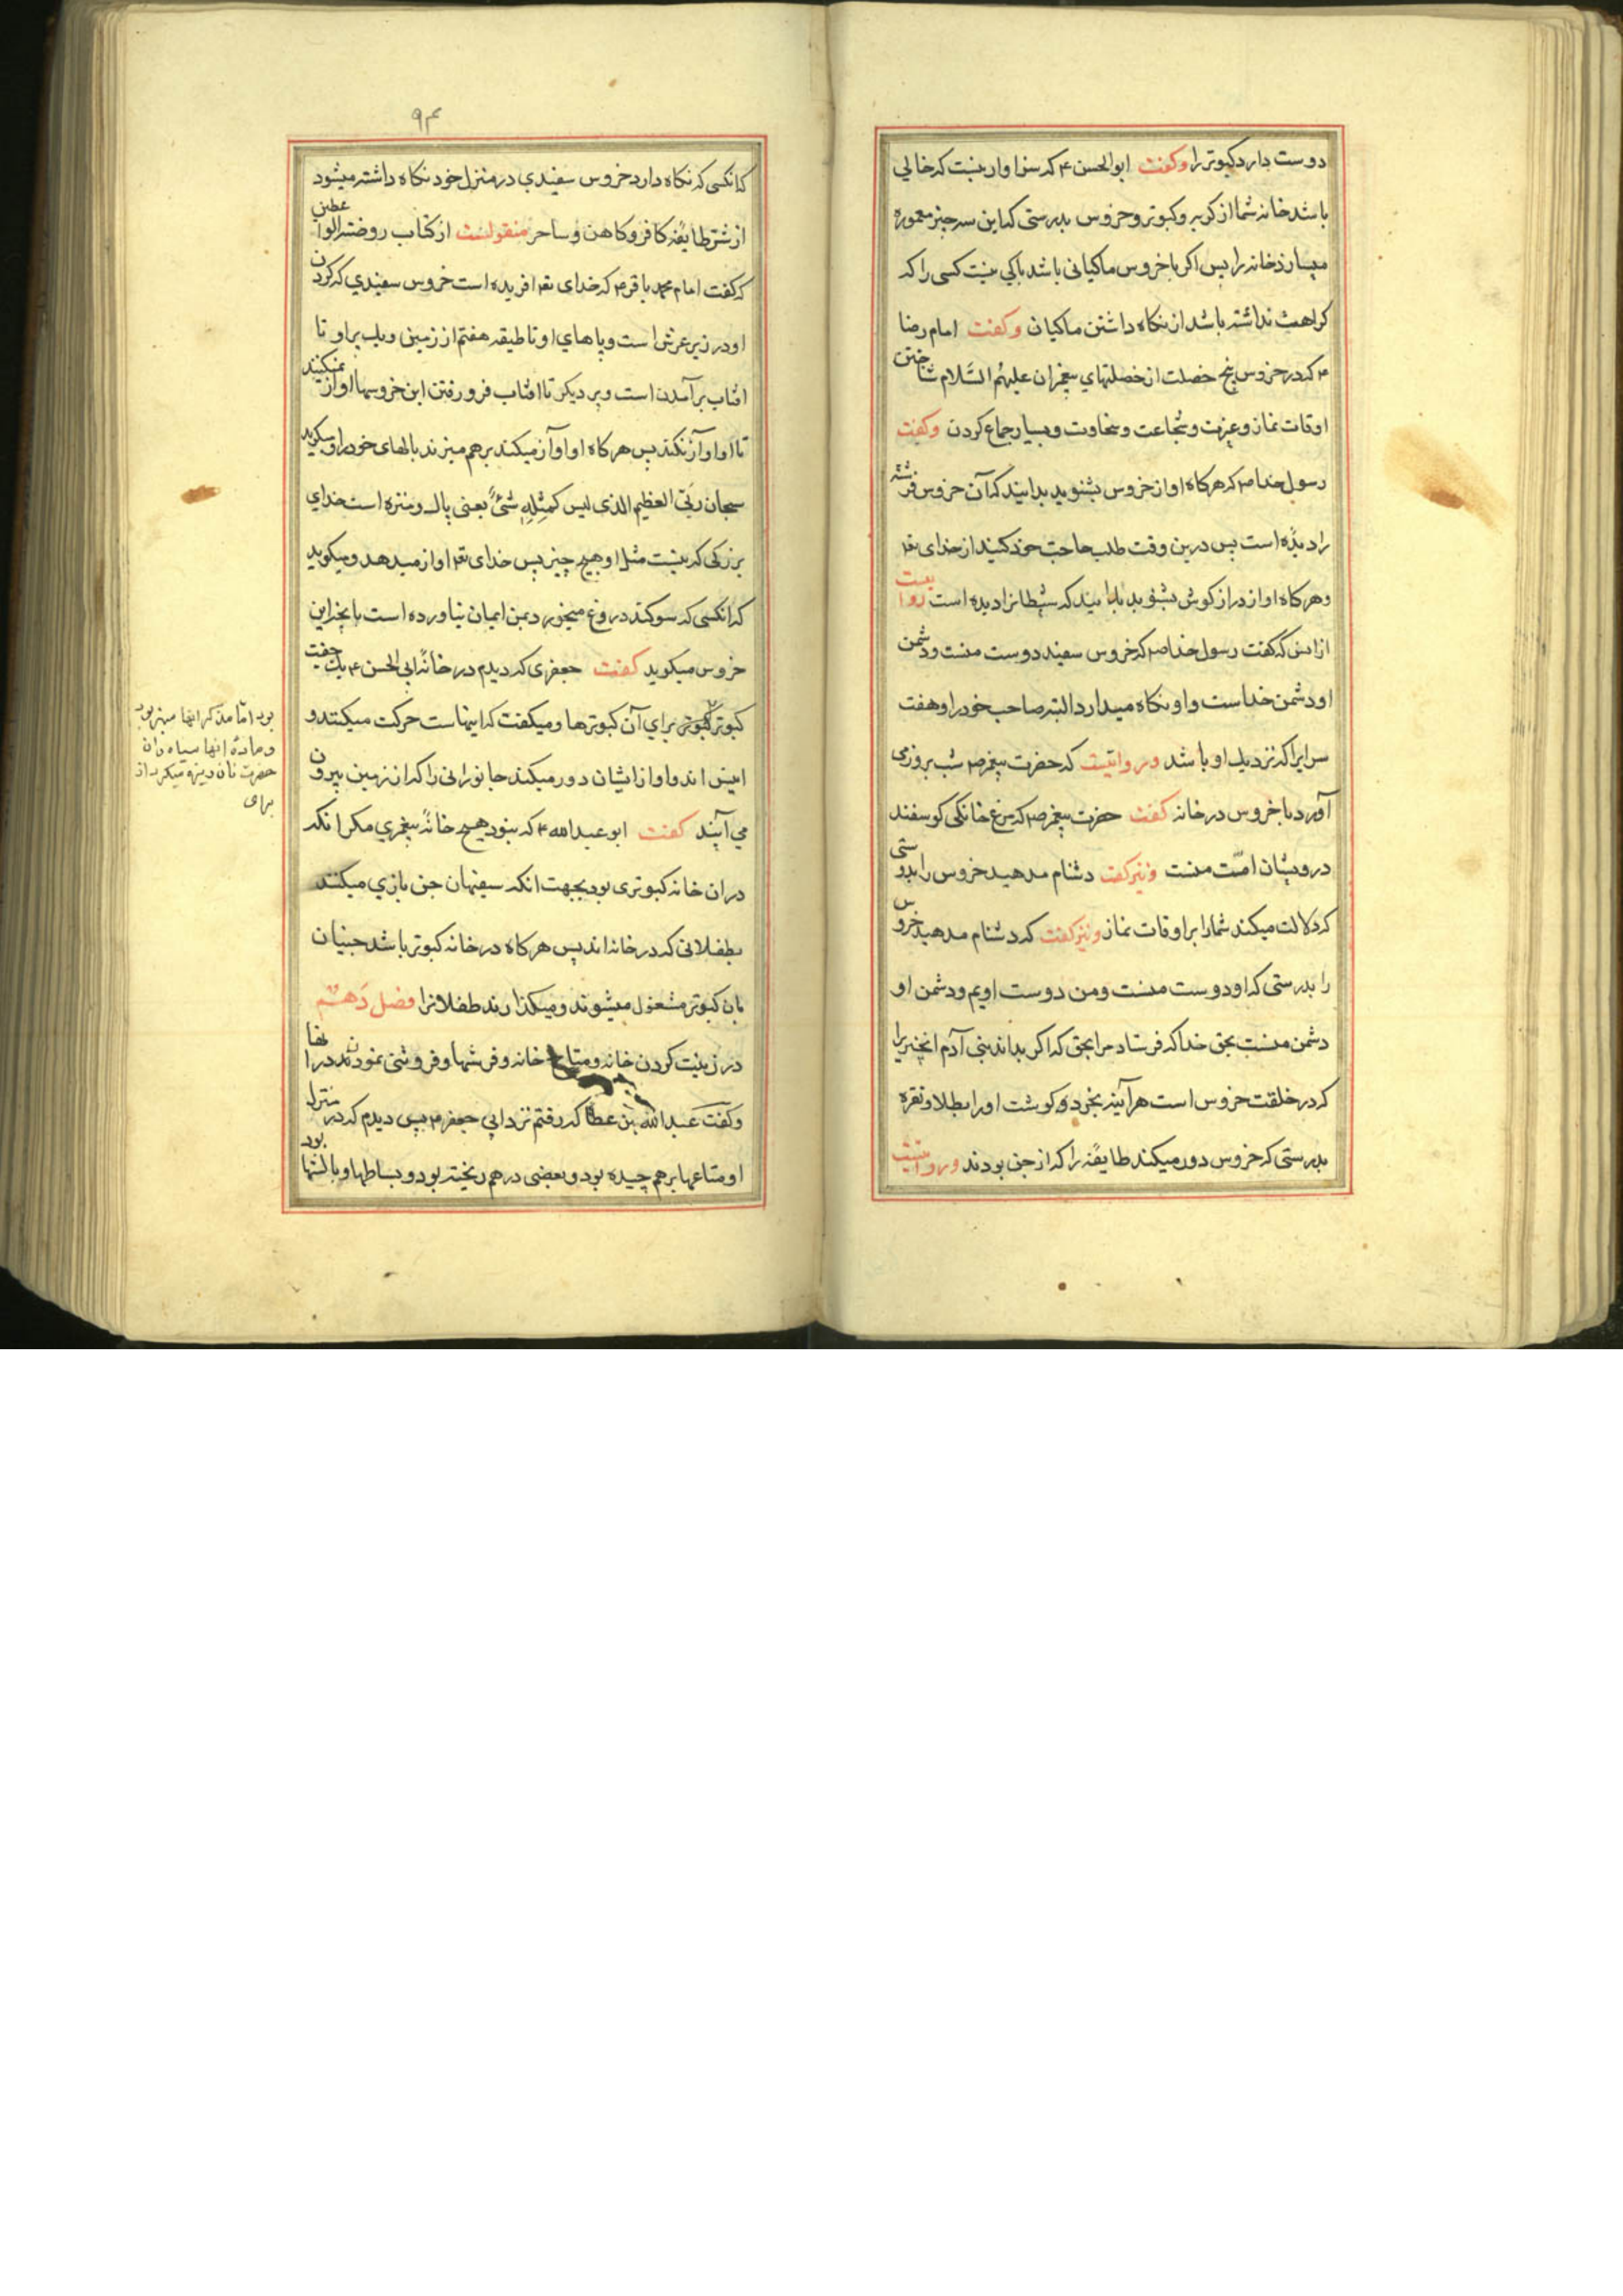 دوست دارد کبوتر را وکفت ابوالحسن ۴ که سزاوار نیست که خالی
باشد خانه شما از کربه وکبوتر وخروس بدرستی که این سه چیز معموره
میسازند خانه را پس اکر با خروس ماکیانی باشد باکی نیست کسی را که
کراهت نداشته باشد از نکاه داشتن ماکیان وکفت امام رضا
۴ که در خروس پنج خصلت از خصلتهای پیغمبران علیهم السّلام شناختن
اوقات نماز وغیرت وشجاعت وسخاوت وبسیار جماع کردن وکفت
رسول خدا ص که هر کاه اواز خروس بشنوید بدانید که آن خروس فرشته
را دیده است پس درین وقت طلب حاجت خود کنید از خدای تع
وهر کاه اواز دراز کوش بشنوید بدانید که شیطانرا دیده است روایت
از انس که کفت رسول خدا ص که خروس سفید دوست منست ودشمن
او دشمن خداست واو نکاه میدارد البته صاحب خود را وهفت
سرایرا که نزدیك او باشد وروایتست که حضرت پیغمبر ص شب بروز می
آورد با خروس در خانه کفت حضرت پیغمبر ص که مرغ خانکی کوسفند
درویشان امّت منست ونیز کفت دشنام مدهید خروس را بدرستی
که دلالت میکند شما را بر اوقات نماز ونیز کفت که دشنام مدهید خروس
را بدرستی که او دوست منست ومن دوست اویم ودشمن او
دشمن منست بحق خدا که فرستاد مرا بحق که اکر بدانند بنی آدم انچیز را
که در خلقت خروس است هر آینه بخرد کوشت او را بطلا ونقره
بدرستی که خروس دور میکند طایفهٔ را که از جن بودند وروایتست
۹۴
که انکسی که نکاه دارد خروس سفیدی در منزل خود نکاه داشته میشود
از شر طایفه کافر وکاهن وساحر منقولست از کتاب روضة الواعظین
که کفت امام محمد باقر ۴ که خدای تع افریده است خروس سفیدی که کردن
او در زیر عرش است وپاهای او تا طبقه هفتم از زمین ویك پر او تا
افتاب برآمدن است وپر دیکر تا افتاب فرو رفتن این خروسها اواز نمیکنند
تا او اواز نکند پس هر کاه او اواز میکند بر هم میزند بالهای خود را ومیکوید
سبحان ربّی العظیم الذی لیس کمثله شئ یعنی پاك ومنزه است خدای
بزرکی که نیست مثل او هیچ چیز پس خدای تع اواز میدهد ومیکوید
که انکسی که سوکند دروغ میخورد بمن ایمان نیاورده است بانچه این
خروس میکوید کفت جعفری که دیدم در خانهٔ ابی الحسن ۴ یك جفت
کبوتر کبوتر برای آن کبوترها ومیکفت که اینهاست حرکت میکنند و
انیس اند واو از ایشان دور میکند جانورانی را که از زمین بیرون
می آیند کفت ابو عبدالله ۴ که نبود هیچ خانهٔ پیغمبری مکر انکه
دران خانه کبوتری بود بجهت انکه سفیهان جن بازی میکنند
بطفلانی که در خانه اند پس هر کاه در خانه کبوتر باشد جنیان
بان کبوتر مشغول میشوند ومیکذارند طفلانرا فصل دهم
در زینت کردن خانه ومتاع خانه وفرشها وفروتنی نمودن در انها
وکفت عبدالله بن عطا که رفتم نزد ابی جعفر ۴ پس دیدم که در منزل
او متاعها بر هم چیده بود وبعضی در هم ریخته بود وبساطها وبالشها بود
بود اما مذکر انها سبز بود
وماده انها سیاه وان
حضرت نان ریزه میکرد از
برای